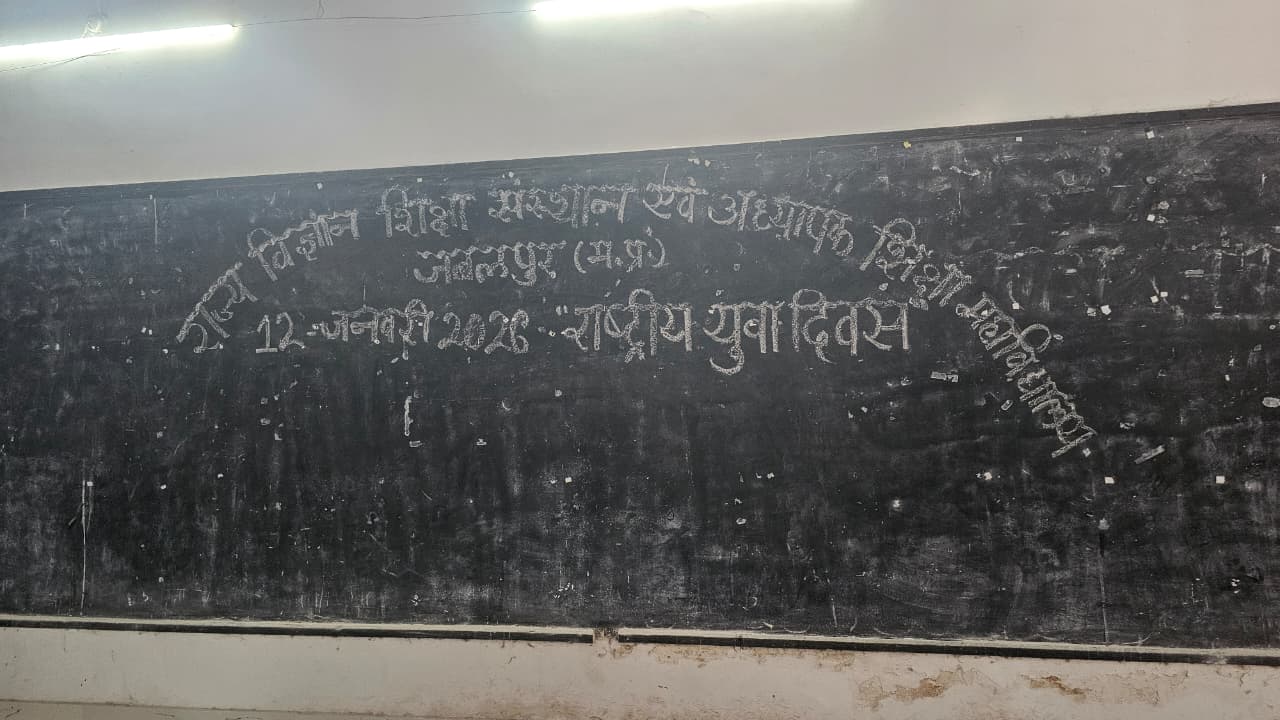 राज्य विज्ञान शिक्षा संस्थान एवं अध्यापक शिक्षा महाविद्यालय
जबलपुर (म.प्र.)
12 जनवरी 2026 "राष्ट्रीय युवा दिवस"